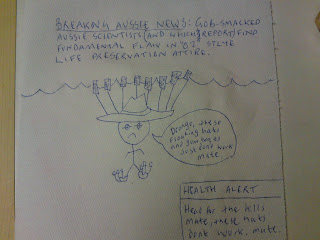 BREAKING AUSSIE NEWS: GOB-SMACKED
AUSSIE SCIENTISTS (AND WHICH? REPORT) FIND
FUNDAMENTAL FLAW IN "OZ" STYLE
LIFE PRESERVATION ATTIRE.
Drongo, these
floating hats
just dont work
mate.
HEALTH ALERT
Head for the hills
mate, these hats
dont work. mate.